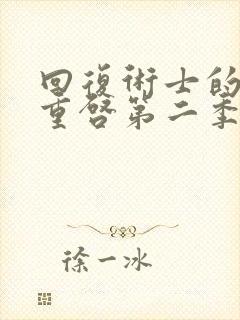 回復術士的
重啓第二季
徐一冰